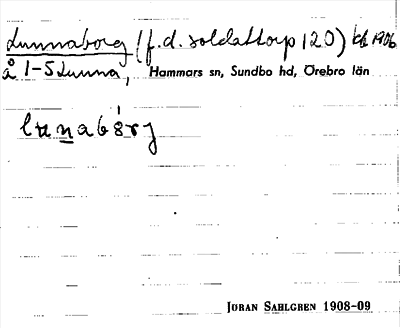 Lunnaborg (f.d. soldattorp 120) kb 1906
å 1-5 Lunna, Hammars sn, Sundbo hd, Örebro län
JÖRAN SAHLGREN 1908-09